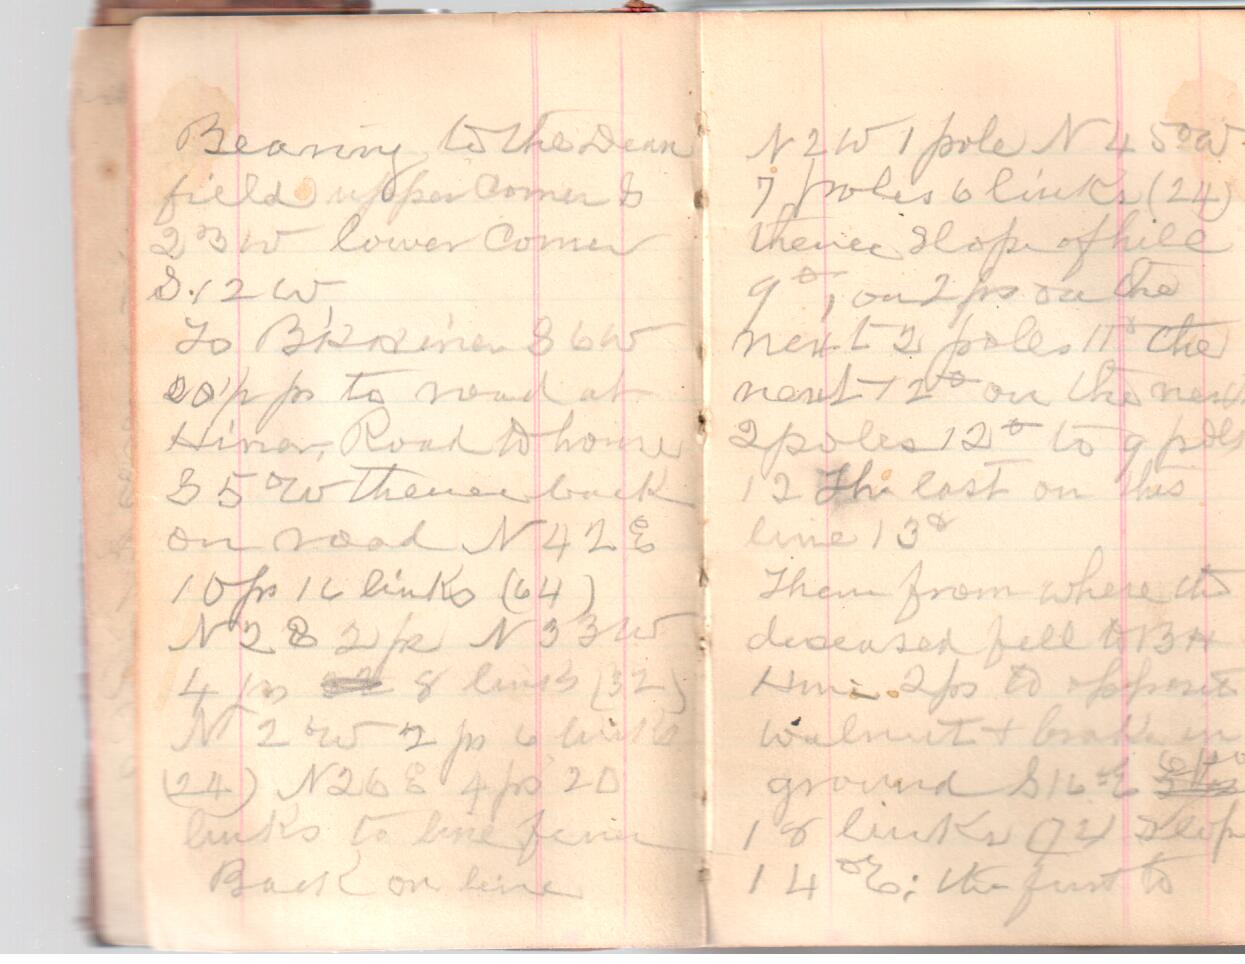 Bearing to the Dean
field upper corner S
23 W lower corner
S. 12 W.
To S 6 W
20 ps to road at
Road to house
S 5° W thence back
on road N 42 E
10 ps 16 links (64)
N 28 2 ps N 33 W
4 ps 8 links (32)
N 2° W 2 ps 6 links
(24) N 26 E 4 ps 20
links to line fence
Back on line
N 2 W 1 pole N 45° W
7 poles 6 links (24)
thence Slope of hill
9°, on 2 ps on the
next 2 poles 11° the
next 12° on the next
2 poles 12° to 9 poles
12 The last on this
line 13°
Then from where the
deceased fell to B H
2 ps to opposite
walnut + in
ground S 16° E
18 links (72) Slope
14° E; the first to